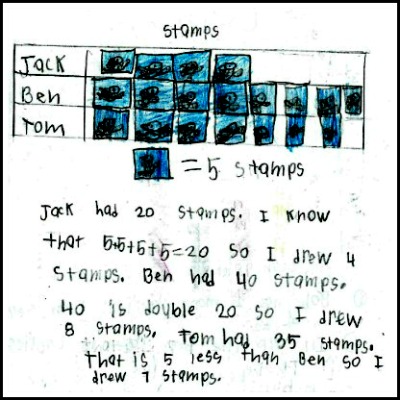 stamps
Jack
Ben
Tom
= 5 stamps
Jack had 20 stamps. I know
that 5+5+5+5=20 so I drew 4
stamps. Ben had 40 stamps.
40 is double 20 so I drew
8 stamps. Tom had 35 stamps.
That is 5 less than Ben so I
drew 7 stamps.